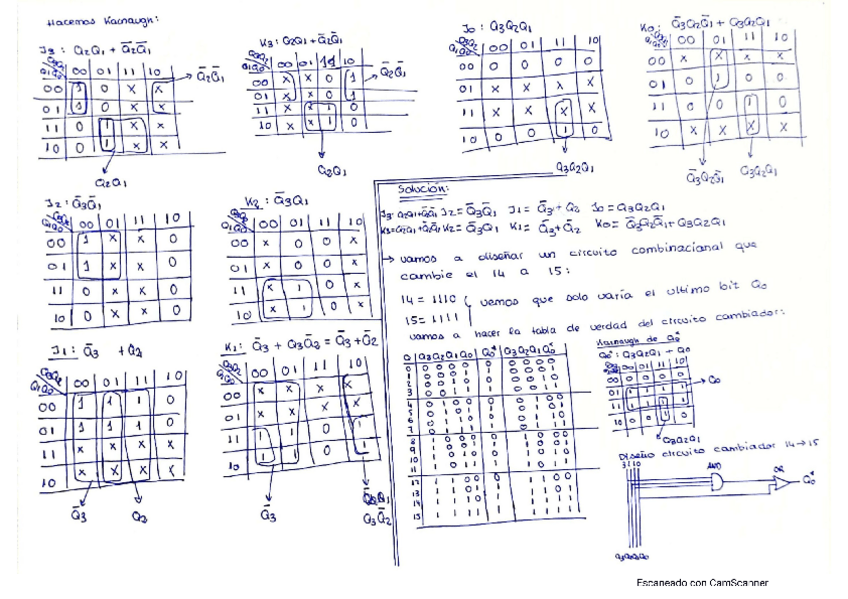 Hacemos Karnaugh:
J3: Q2Q1 + Q̄2Q̄1
Q3Q2
Q1Q0 00 01 11 10
00 1 0 x x
01 1 0 x x
11 0 1 x x
10 0 1 x x
Q̄2Q̄1
Q2Q1
K3: Q2Q1 + Q̄2Q̄1
Q1Q0 00 01 11 10
00 x x 0 1
01 x x 0 1
11 x x 1 0
10 x x 1 0
Q̄2Q̄1
Q2Q1
J0: Q3Q2Q1
Q1Q0 00 01 11 10
00 0 0 0 0
01 x x x x
11 x x x x
10 0 0 1 0
Q3Q2Q1
K0: Q̄3Q2Q̄1 + Q3Q2Q1
00 01 11 10
00 x x x x
01 0 1 0 0
11 0 0 1 0
10 x x x x
Q̄3Q2Q̄1
Q3Q2Q1
J2: Q̄3Q̄1
00 01 11 10
00 1 x x 0
01 1 x x 0
11 0 x x 0
10 0 x x 0
K2: Q̄3Q1
00 01 11 10
00 x 0 0 x
01 x 0 0 x
11 x 1 0 x
10 x 1 0 x
J1: Q̄3 + Q2
Q1Q0 00 01 11 10
00 1 1 1 0
01 1 1 1 0
11 x x x x
10 x x x x
Q̄3
Q2
K1: Q̄3 + Q3Q̄2 = Q̄3 + Q̄2
Q1Q0 00 01 11 10
00 x x x x
01 x x x x
11 1 1 0 1
10 1 1 0 1
Q̄3
Q3Q̄2
Solución:
J3= Q2Q1+Q̄2Q̄1 J2= Q̄3Q̄1 J1= Q̄3 + Q2 J0= Q3Q2Q1
K3=Q2Q1+Q̄2Q̄1 K2= Q̄3Q1 K1= Q̄3+Q̄2 K0= Q̄3Q2Q̄1+ Q3Q2Q1
→ vamos a diseñar un circuito combinacional que
cambie el 14 a 15:
14 = 1110
15 = 1111
vemos que solo varía el ultimo bit Q0
vamos a hacer la tabla de verdad del circuito cambiador:
Q Q3Q2Q1Q0 Q0* Q3Q2Q1Q0*
0 0 0 0 0 0 0 0 0 0
1 0 0 0 1 1 0 0 0 1
2 0 0 1 0 0 0 0 1 0
3 0 0 1 1 1 0 0 1 1
4 0 1 0 0 0 0 1 0 0
5 0 1 0 1 1 0 1 0 1
6 0 1 1 0 0 0 1 1 0
7 0 1 1 1 1 0 1 1 1
8 1 0 0 0 0 1 0 0 0
9 1 0 0 1 1 1 0 0 1
10 1 0 1 0 0 1 0 1 0
11 1 0 1 1 1 1 0 1 1
12 1 1 0 0 0 1 1 0 0
13 1 1 0 1 1 1 1 0 1
14 1 1 1 0 1 1 1 1 1
15 1 1 1 1 1 1 1 1 1
Karnaugh de Q0*
Q0*: Q3Q2Q1 + Q0
00 01 11 10
00 0 0 0 0
01 1 1 1 1
11 1 1 1 1
10 0 0 1 0
Q0
Q3Q2Q1
Diseño circuito cambiador 14→15
3210
AND
OR
Q0*
Q3Q2Q1Q0
Escaneado con CamScanner